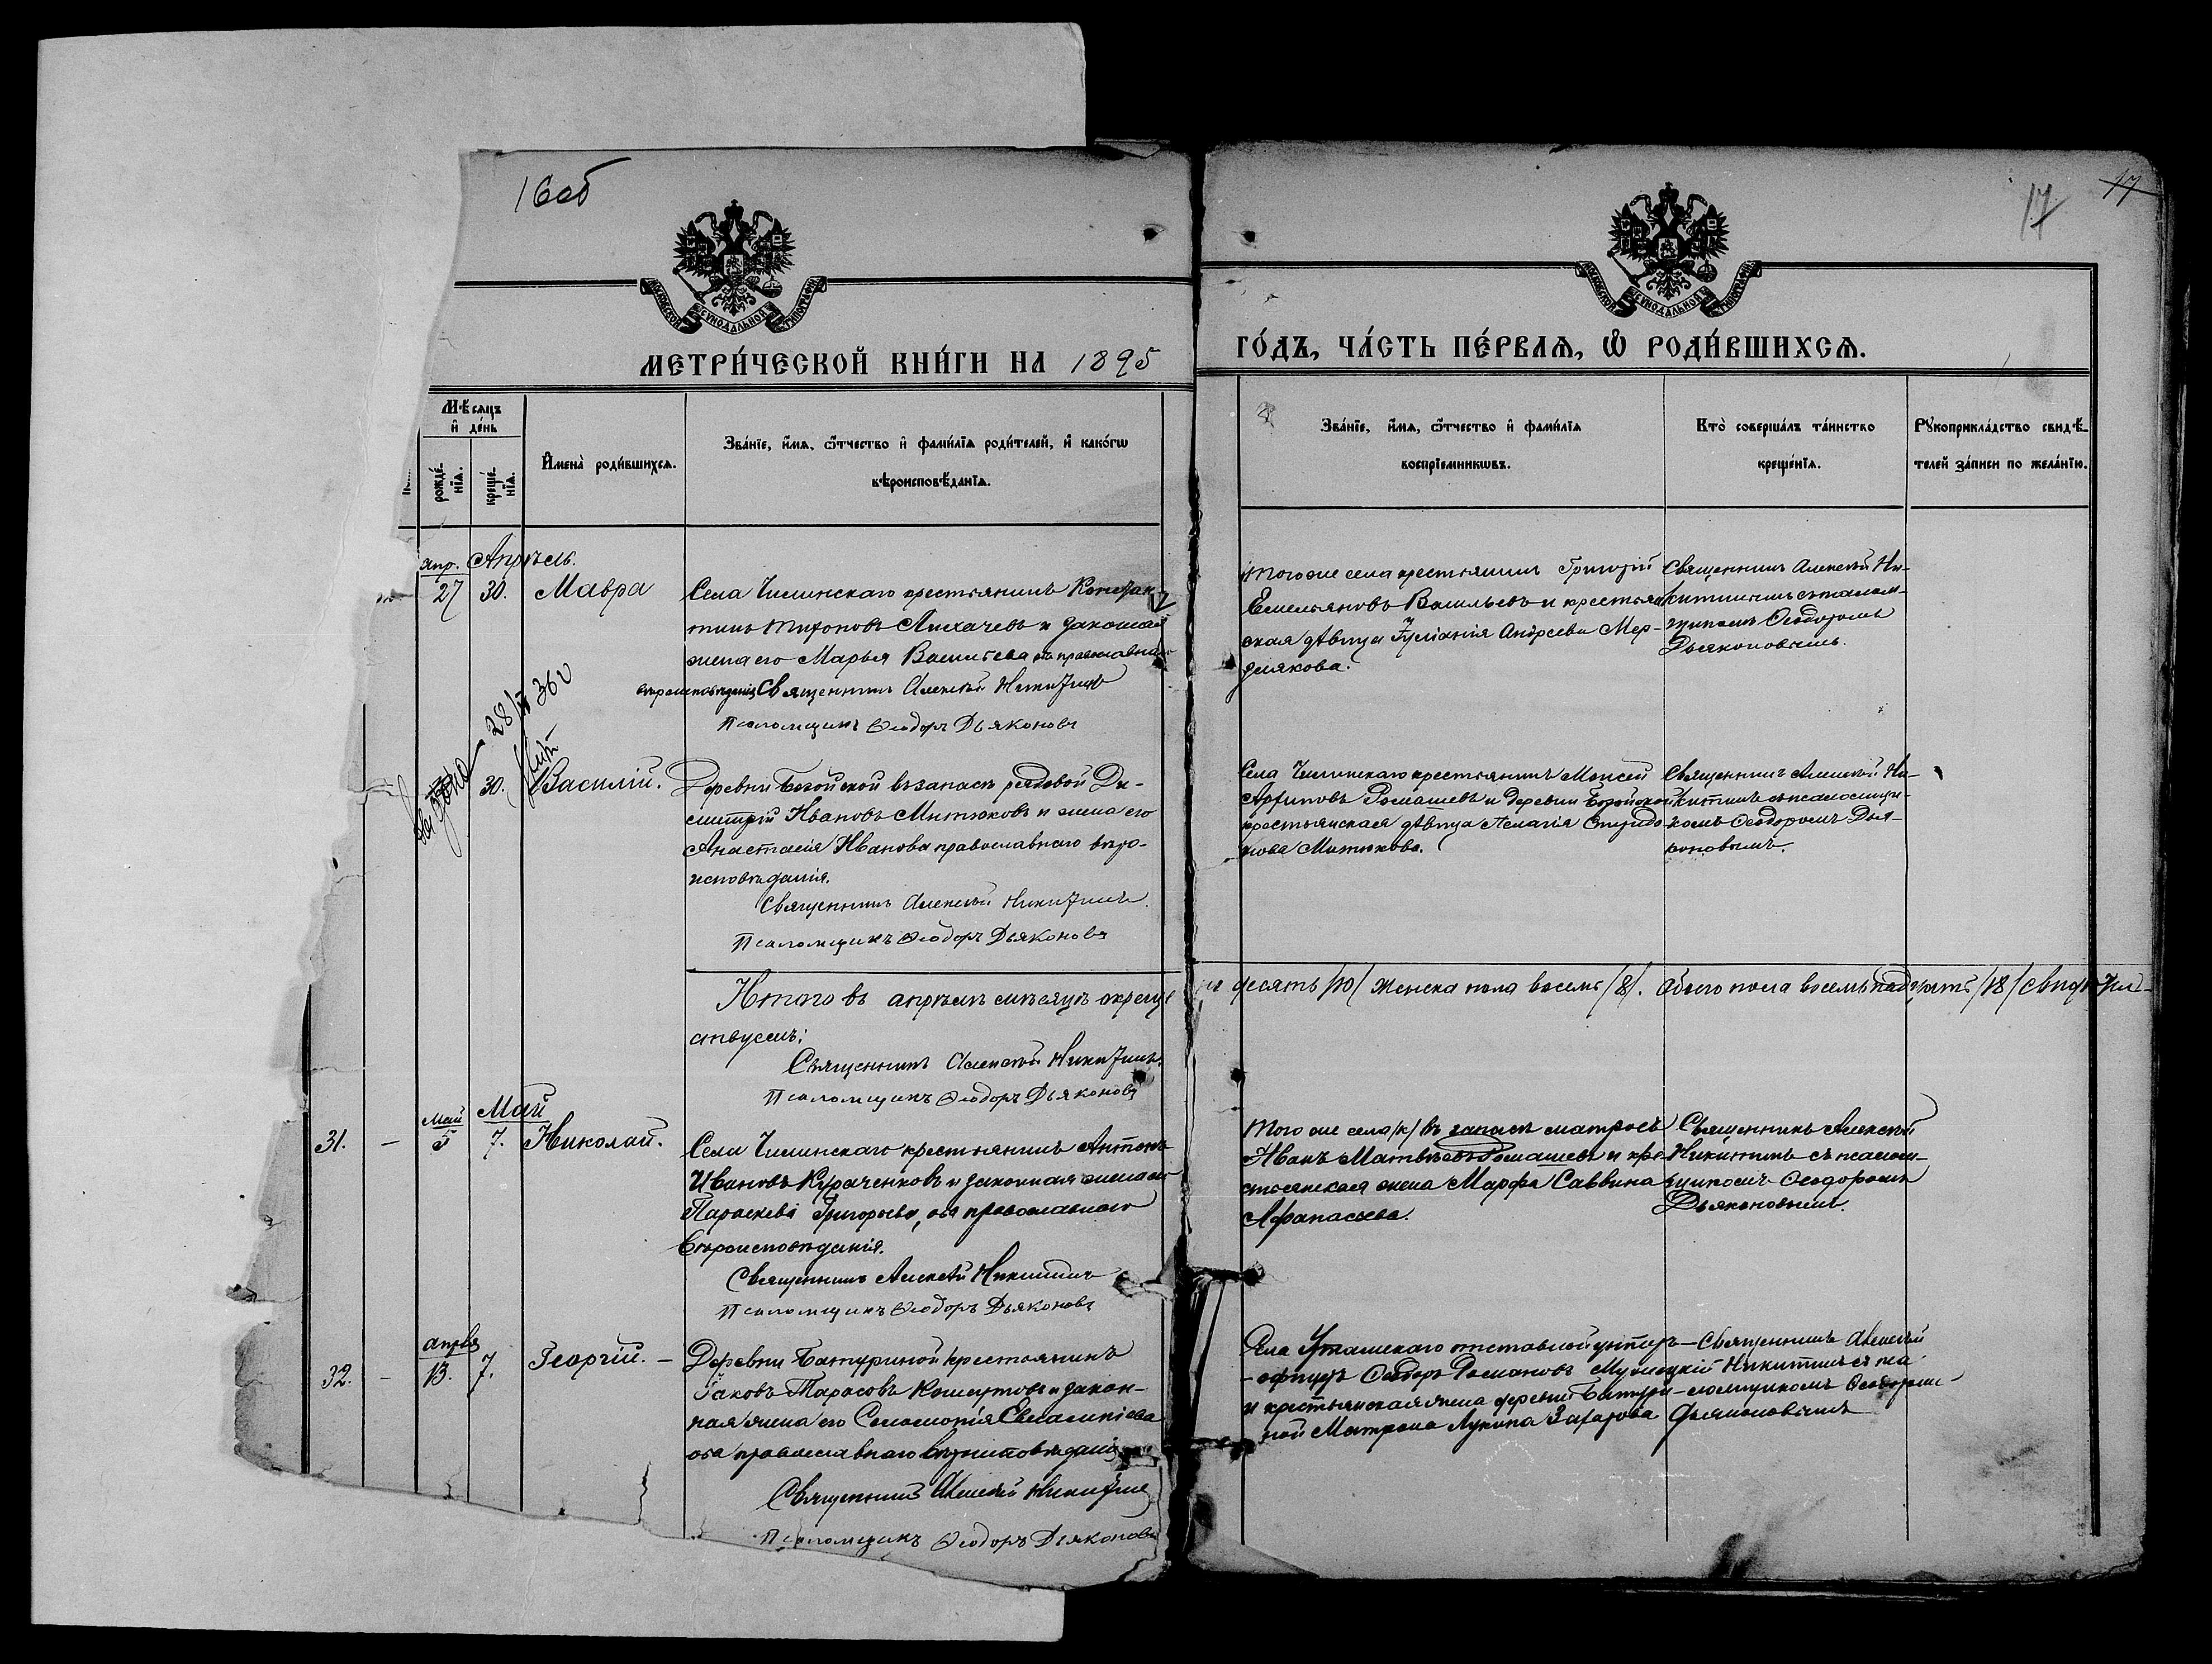 16об
17
17
МОСКОВСКОЙ СѴНОДАЛЬНОЙ ТИПОГРАФІИ
МОСКОВСКОЙ СѴНОДАЛЬНОЙ ТИПОГРАФІИ
МЕТРИ́ЧЕСКОЙ КНИ́ГИ НА 1895
ГО́ДЪ, ЧА́СТЬ ПЕ́РВАѦ, Ѡ҆ РОДИ́ВШИХСѦ.
Мѣ́сѧцъ
и҆ де́нь
рожде́-
нїѧ.
креще́-
нїѧ.
И҆мена̀ роди́вшихсѧ.
Зва́нїе, и҆́мѧ, ѻ҆́тчество и҆ фами́лїѧ роди́телей, и҆ како́гѡ
вѣроисповѣ́данїѧ.
Зва́нїе, и҆́мѧ, ѻ҆́тчество и҆ фами́лїѧ
воспрїе́мникѡвъ.
Кто̀ соверша́лъ та́инство
креще́нїѧ.
Рꙋкоприкла́дство свидѣ́-
телей за́писи по жела́нїю.
апр. Апрѣль.
27 30. Мавра
Села Чишинскаго крестьянинъ Констан
тинъ Тихоновъ Лихачевъ и законная
жена его Марья Васильева, оба православнаго
вѣроисповѣданія Священникъ Алексѣй Никитинъ
Псаломщикъ Ѳеодоръ Дьяконовъ
Того же села крестьянинъ Григорій
Емельяновъ Васильевъ и крестьян
ская дѣвица Іуліанія Андреева Мер-
злякова.
Священникъ Алексѣй Ни-
китинъ съ псалом-
щикомъ Ѳеодоромъ
Дьяконовымъ.
28/ 36
30. Василій.
Деревни въ запасѣ рядовой Ди-
митрій Ивановъ Митюковъ и жена его
Анастасія Иванова православнаго вѣро-
исповѣданія.
Священникъ Алексѣй Никитинъ.
Псаломщикъ Ѳеодоръ Дьяконовъ
Села Чишинскаго крестьянинъ Моисей
Архиповъ Ромашевъ и деревни
крестьянская дѣвица Пелагія Спиридо
нова Митюкова.
Священникъ Алексѣй Ни-
китинъ съ псаломщи-
комъ Ѳеодоромъ Дья-
коновымъ.
Итого въ апрѣлѣ мѣсяцѣ окреще
но десять /10/ женска пола восемь /8/. Обоего пола восемьнадцать /18/ свидѣтель-
ствуемъ:
Священникъ Алексѣй Никитинъ.
Псаломщикъ Ѳеодоръ Дьяконовъ
Май Май
31. — 5 7. Николай.
Села Чишинскаго крестьянинъ Антонъ
Ивановъ Кураченковъ и законная жена его
Параскева Григорьева, оба православнаго
вѣроисповѣданія.
Священникъ Алексѣй Никитинъ
Псаломщикъ Ѳеодоръ Дьяконовъ
Того же села /к/ въ запасѣ матросъ
Иванъ Матвѣевъ Ромашевъ и кре-
стьянская жена Марфа Саввина
Афанасьева.
Священникъ Алексѣй
Никитинъ съ псалом-
щикомъ Ѳеодоромъ
Дьяконовымъ.
апрѣля
32. — 13. 7. Георгій. —
Деревни Батуриной крестьянинъ
Іаковъ Тарасовъ и закон-
ная жена его Соломонія Евлампіева
оба православнаго вѣроисповѣданія
Священникъ Алексѣй Никитинъ
Псаломщикъ Ѳеодоръ Дьяконовъ
Села отставной унтеръ-
-офицеръ Ѳеодоръ Романовъ
и крестьянская жена деревни Батури-
ной Матрона Лукина Захарова
Священникъ Алексѣй
Никитинъ съ пса-
ломщикомъ Ѳеодоромъ
Дьяконовымъ